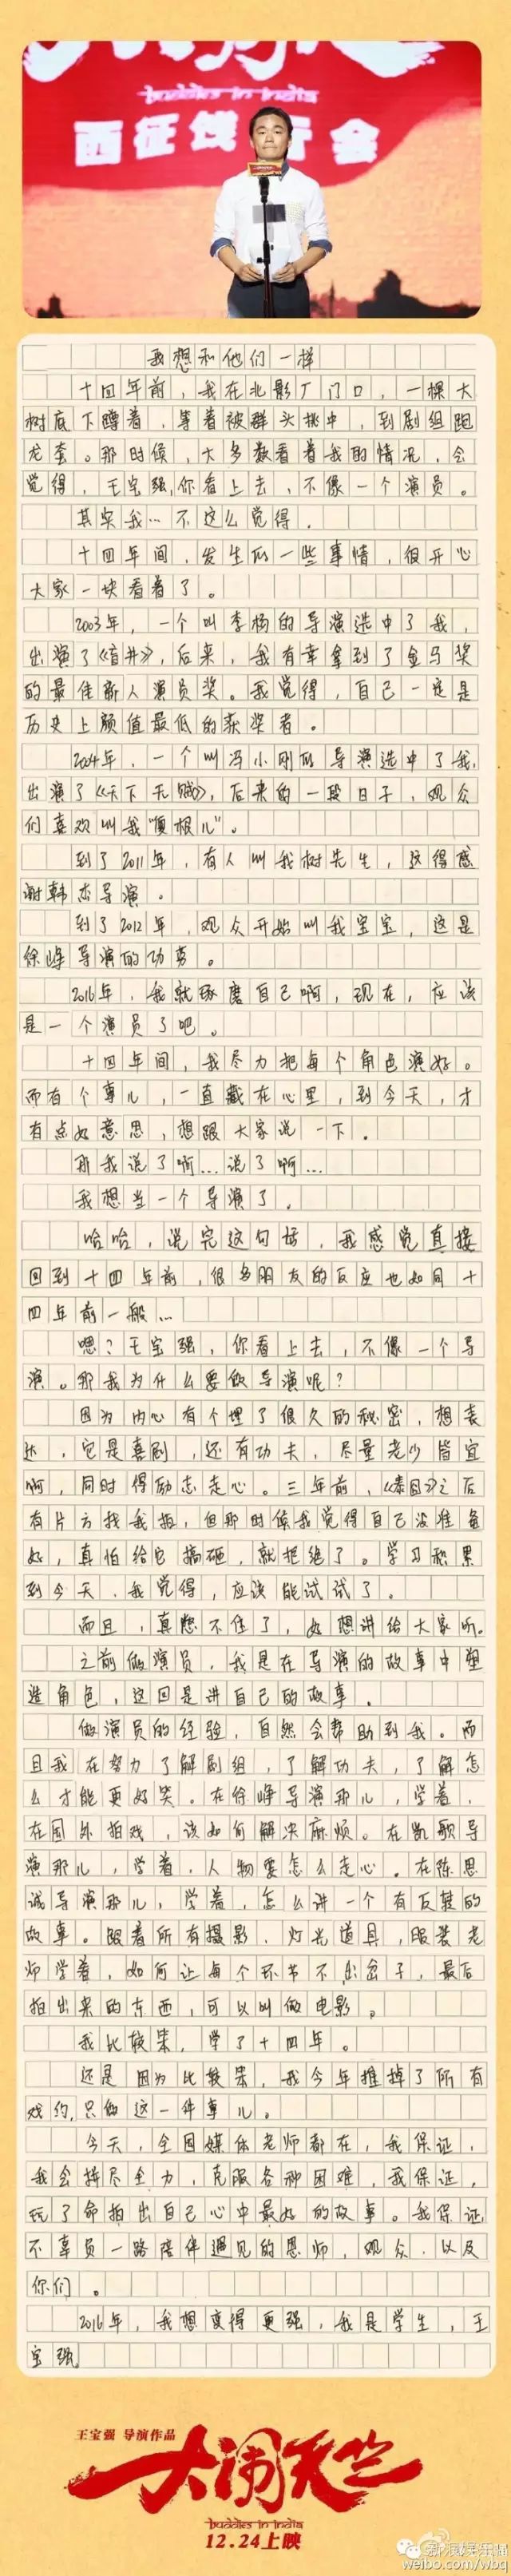 buddies in india
西征饯行会
我想和他们一样
十四年前，我在北影厂门口，一棵大
树底下蹲着，等着被群头挑中，到剧组跑
龙套。那时候，大多数看着我的情况，会
觉得，王宝强，你看上去，不像一个演员。
其实我…不这么觉得．
十四年间，发生的一些事情，很开心
大家一块看着了。
2003年，一个叫李杨的导演选中了我，
出演了《盲井》，后来，我有幸拿到了金马奖
的最佳新人演员奖。我觉得，自己一定是
历史上颜值最低的获奖者。
2004年，一个叫冯小刚的导演选中了我，
出演了《天下无贼》，后来的一段日子，观众
们喜欢叫我“傻根儿”。
到了2011年，有人叫我树先生，这得感
谢韩杰导演。
到了2012年，观众开始叫我宝宝，这是
徐峥导演的功劳。
2016年，我就琢磨自己啊，现在，应该
是一个演员了吧。
十四年间，我尽力把每个角色演好。
而有个事儿，一直藏在心里，到今天，才
有点好意思，想跟大家说一下。
那我说了啊…说了啊…
我想当一个导演了．
哈哈，说完这句话，我感觉直接
回到十四年前，很多朋友的反应也如同十
四年前一般…
嗯？王宝强，你看上去，不像一个导
演。那我为什么要做导演呢？
因为内心有个埋了很久的秘密，想表
达，它是喜剧，还有功夫，尽量老少皆宜
啊，同时得励志走心。三年前，《泰囧》之后
有片方找我拍，但那时候我觉得自己没准备
好，真怕给它搞砸，就拒绝了。学习积累
到今天，我觉得，应该能试试了。
而且，真憋不住了，好想讲给大家听。
之前做演员，我是在导演的故事中塑
造角色，这回是讲自己的故事．
做演员的经验，自然会帮助到我。而
且我在努力了解剧组，了解功夫，了解怎
么才能更好笑。在徐峥导演那儿，学着，
在国外拍戏，该如何解决麻烦。在凯歌导
演那儿，学着，人物要怎么走心。在陈思
诚导演那儿，学着，怎么讲一个有反转的
故事。跟着所有摄影、灯光道具，服装老
师学着，如何让每个环节不出岔子，最后
拍出来的东西，可以叫做电影。
我比较笨，学了十四年。
还是因为比较笨，我今年推掉了所有
戏约，只做这一件事儿。
今天，全国媒体老师都在，我保证，
我会拼尽全力，克服各种困难，我保证，
玩了命拍出自己心中最好的故事。我保证，
不辜负一路陪伴遇见的恩师，观众，以及
你们。
2016年，我想变得更强，我是学生，王
宝强
王宝强 导演作品
大闹天竺
buddies in india
12.24上映
weibo.com/wbq